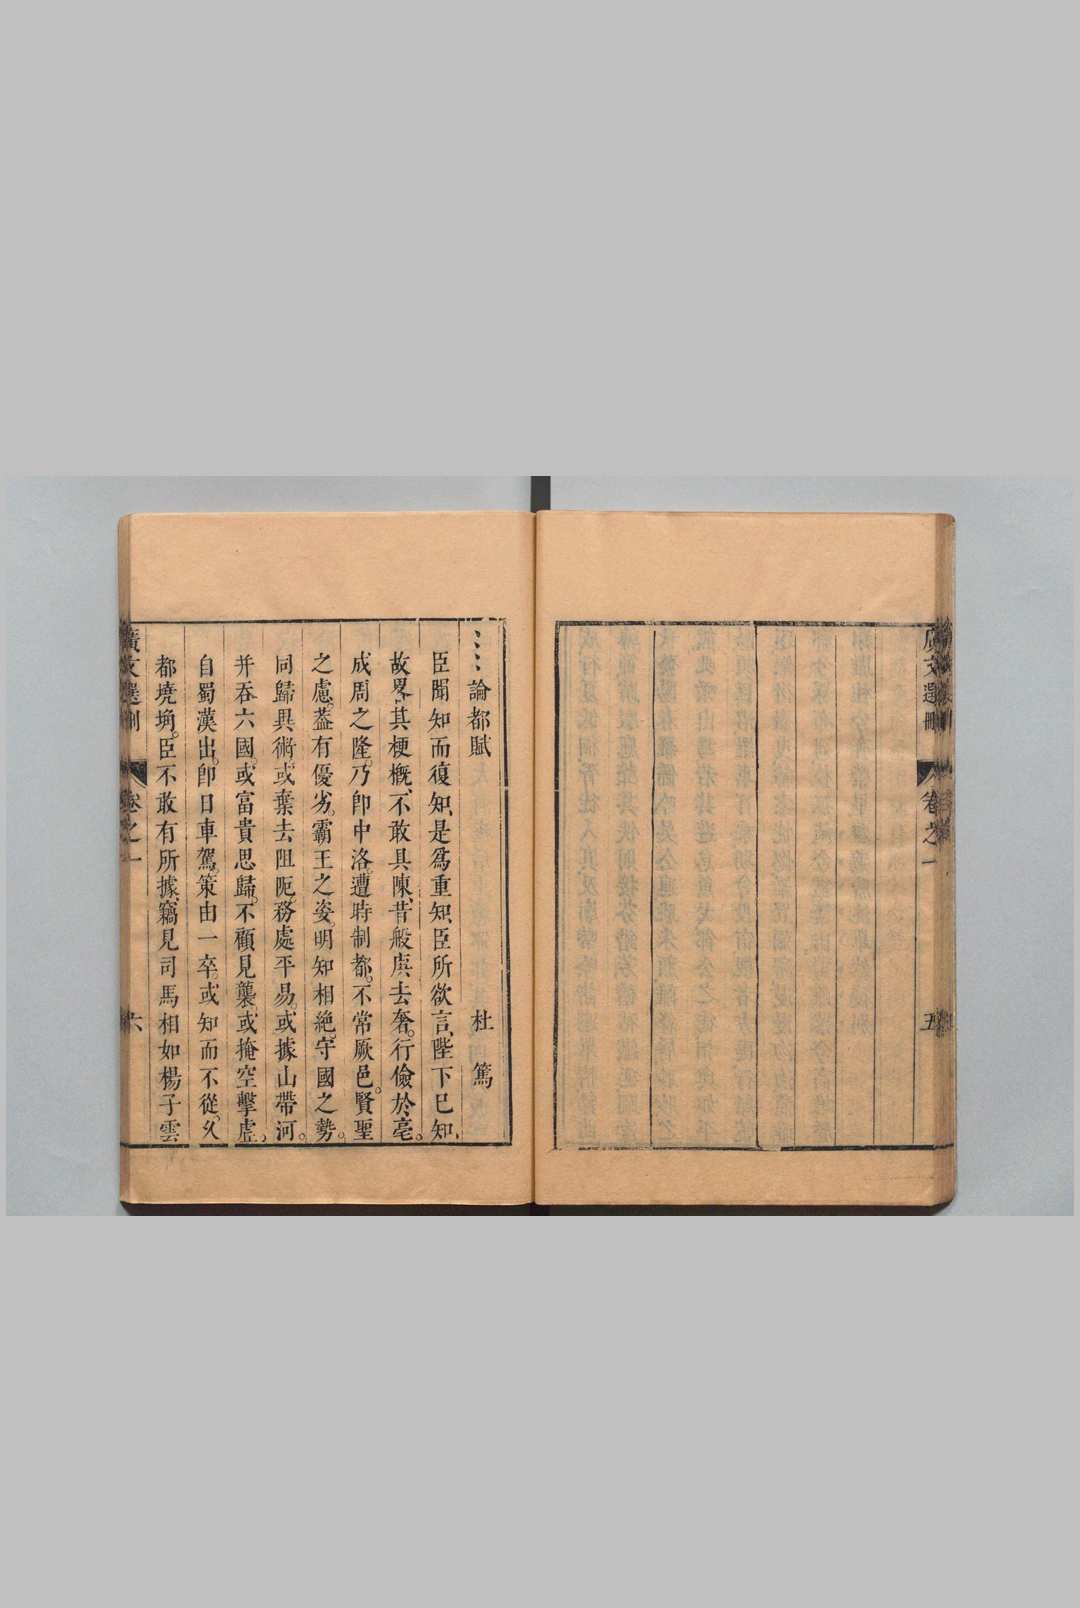 廣文選刪
卷之一
五
論都賦
杜篤
臣聞知而復知是爲重知臣所欲言、陛下已知、
故畧其梗概、不敢具陳、昔般庚去奢。行儉於亳。
成周之隆。乃卽中洛。遭時制都。不常厥邑。賢聖
之慮。葢有優劣。霸王之姿。明知相絶。守國之勢。
同歸異術。或棄去阻阨。務處平易。或據山帶河。
并吞六國。或富貴思歸。不顧見襲。或掩空擊虛。
自蜀漢出。卽日車駕。策由一卒。或知而不從。久
都墝埆。臣不敢有所據、竊見司馬相如楊子雲
廣文選刪
卷之一
六